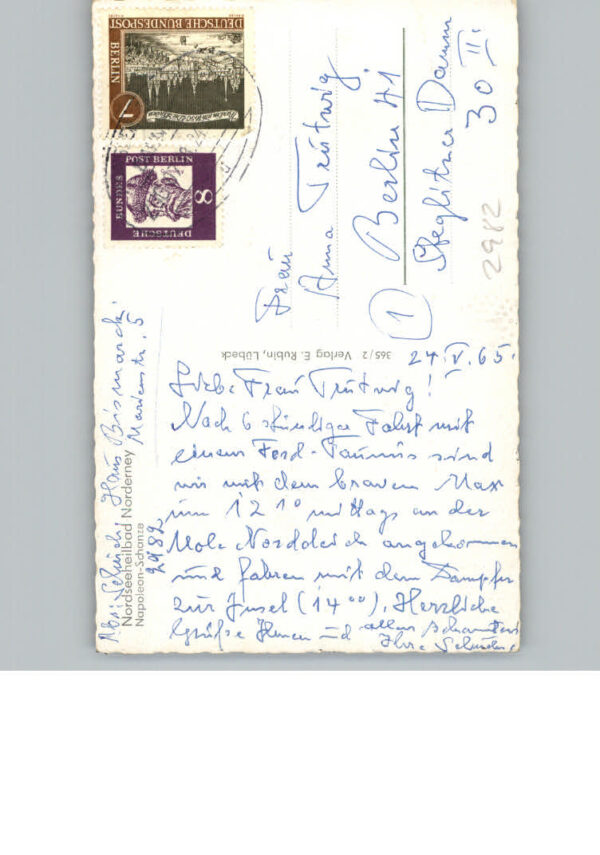 DEUTSCHE BUNDESPOST
BERLIN
7
DEUTSCHE BUNDES
POST BERLIN
8
Frau
Anna Trutwig
1 Berlin 41
Steglitzer Damm
30 II.
2982
365/2 Verlag E. Rubin, Lübeck
24.V.65.
Liebe Frau Trutwig!
Nach 6 stündiger Fahrt mit
einem Ford-Taunus sind
wir mit dem braven Max
um 12 10 mittags an der
Mole Norddeich angekommen
und fahren mit dem Dampfer
zur Insel (14 00). Herzliche
Grüße Ihnen und allen
Ihre
Haus Bismarck
Marienstr. 5
2982
Nordseeheilbad Norderney
Napoleon-Schanze